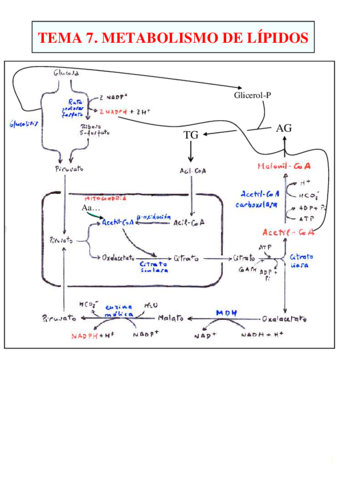 TEMA 7. METABOLISMO DE LÍPIDOS
Glucosa
2 NADP⁺
Ruta
pentosas
fosfato
2 NADPH + 2H⁺
Glicerol-P
Glucolisis
Ribosa
5-fosfato
TG
AG
Malonil-CoA
Piruvato
Acil-CoA
H⁺
HCO₃⁻
Acetil-CoA
carboxilasa
ADP + Pi
ATP
MITOCONDRIA
Aa...
β-oxidación
Acetil-CoA
Acil-CoA
Acetil-CoA
Piruvato
ATP
Oxalacetato
Citrato
Citrato
Citrato
liasa
Citrato
sintasa
CoASH
ADP + Pi
HCO₃⁻
enzima
málica
H₂O
MDH
Piruvato
Malato
Oxalacetato
NADPH + H⁺
NADP⁺
NAD⁺
NADH + H⁺